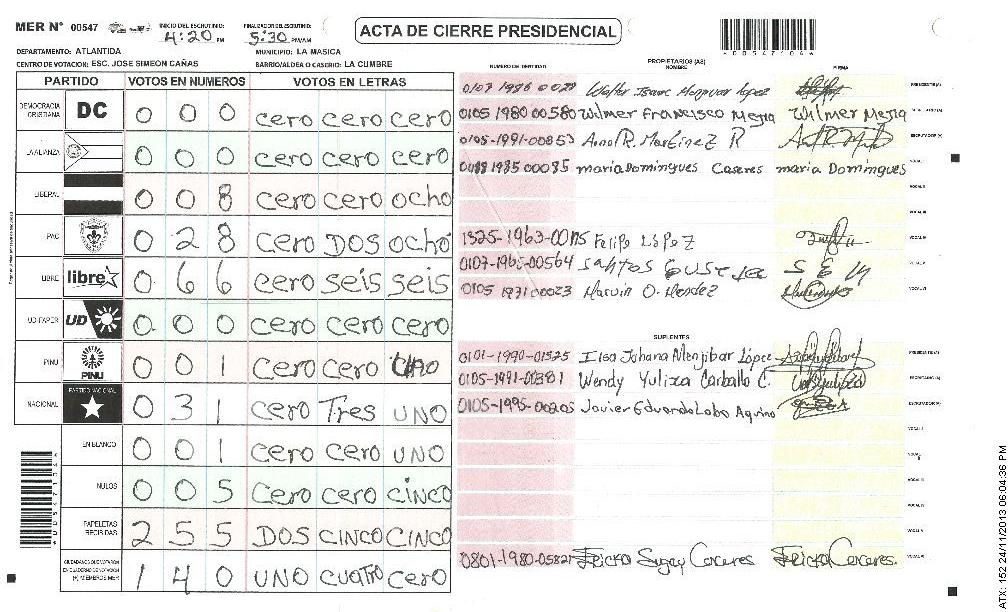 MER N° 00547 INICIO DEL ESCRUTINIO: 4:20 PM FINALIZACION DEL ESCRUTINIO: 5:30 PM/AM ACTA DE CIERRE PRESIDENCIAL
DEPARTAMENTO: ATLANTIDA MUNICIPIO: LA MASICA
CENTRO DE VOTACION: ESC. JOSE SIMEON CAÑAS BARRIO/ALDEA O CASERIO: LA CUMBRE
PARTIDO VOTOS EN NUMEROS VOTOS EN LETRAS
DEMOCRACIA CRISTIANA DC 0 0 0 cero cero cero
LA ALIANZA 0 0 0 cero cero cero
LIBERAL 0 0 8 cero cero ocho
PAC 0 2 8 cero DOS ocho
LIBRE libre 0 6 6 cero seis seis
UD-FAPER UD 0 0 0 cero cero cero
PINU PINU 0 0 1 cero cero uno
NACIONAL PARTIDO NACIONAL 0 3 1 cero Tres UNO
EN BLANCO 0 0 1 cero cero UNO
NULOS 0 0 5 cero cero cinco
PAPELETAS RECIBIDAS 2 5 5 DOS CINCO CINCO
CIUDADANOS QUE VOTARON EN CUADERNO DE VOTACION (+) MIEMBROS MER 1 4 0 UNO cuatro cero
NUMERO DE IDENTIDAD PROPIETARIOS (AS) NOMBRE FIRMA
Walter Isaac López PRESIDENTE(A)
0105 1980 00580 Wilmer Francisco Mejia Wilmer Mejia
0105-1991-00853 Arnol R. Martinez R ESCRUTADOR(A)
1985 00085 maria Domingues Caseres maria Domingues
Felipe López
0107 Santos
0105 1971 00023 Marvin O. Mendez
SUPLENTES
0101-1990-01525 Ilsa Johana Menjibar López PRESIDENTE(A)
0105-1991- Wendy Yulixa Carballo C.
0105-1995-00205 Javier Eduardo Lobo Aquino ESCRUTADOR(A)
0801-1980-05821 Ericka Caceres Ericka Caceres
ATX: 152 24/11/2013 06:04:36 PM